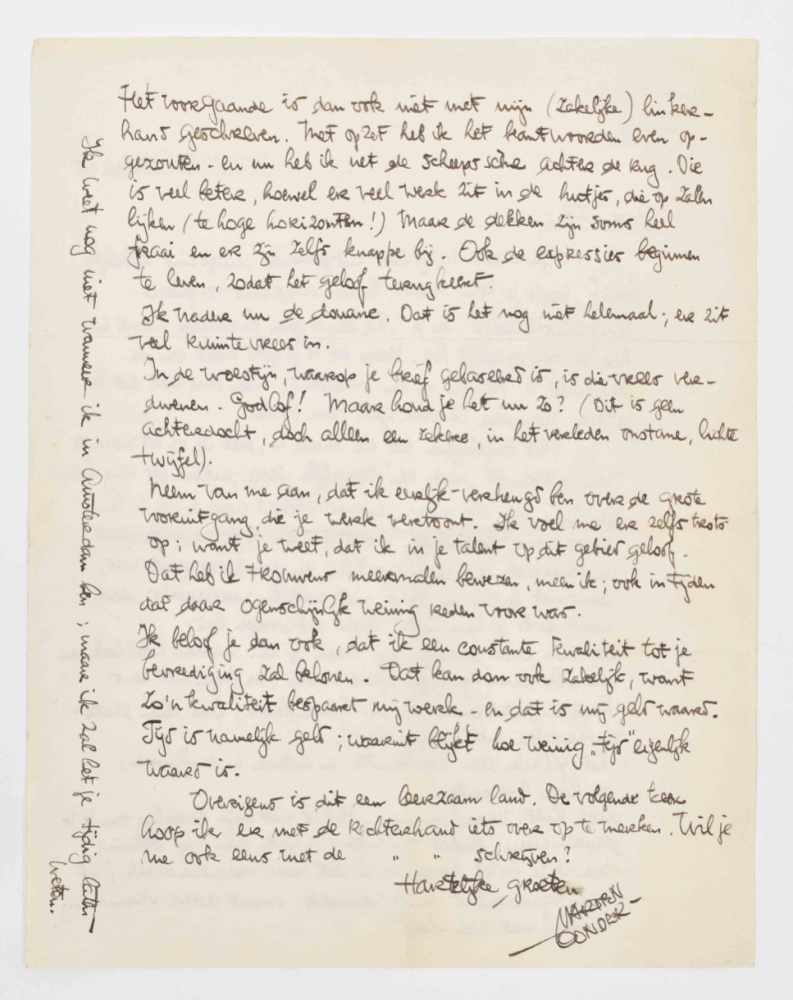 Het voorgaande is dan ook niet met mijn (zakelijke) linker-
hand geschreven. Met opzet heb ik het beantwoorden even op-
gezouten - en nu heb ik net de scheepsscène achter de rug. Die
is veel beter, hoewel er veel werk zit in de hutjes, die op zalen
lijken (te hoge horizonten!) Maar de dekken zijn soms heel
fraai en er zijn zelfs knappe bij. Ook de expressies beginnen
te leven, zodat het geloof terugkeert.
Ik nader nu de douane. Dat is het nog niet helemaal; er zit
veel ruimtevrees in.
In de woestijn, waarop je brief gebaseerd is, is die vrees ver-
dwenen. Godlof! Maar houd je het nu zo? (Dit is geen
achterdocht, doch alleen een zekere, in het verleden onstane, lichte
twijfel).
Neem van me aan, dat ik eerlijk-verheugd ben over de grote
vooruitgang, die je werk vertoont. Ik voel me er zelfs trots
op; want je weet, dat ik in je talent op dit gebied geloof.
Dat heb ik trouwens meermalen bewezen, meen ik; ook in tijden
dat daar ogenschijnlijk weinig reden voor was.
Ik beloof je dan ook, dat ik een constante kwaliteit tot je
bevrediging zal belonen. Dat kan dan ook zakelijk, want
zo'n kwaliteit bespaart mij werk - en dat is mij geld waard.
Tijd is namelijk geld; waaruit blijkt hoe weinig „tijd" eigenlijk
waard is.
Overigens is dit een leerzaam land. De volgende keer
hoop ik er met de rechterhand iets over op te merken. Wil je
me ook eens met de " " schrijven?
Hartelijke groeten
MAARTEN
TOONDER
Ik weet nog niet wanneer ik in Amsterdam ben; maar ik zal het je tijdig laten
weten.